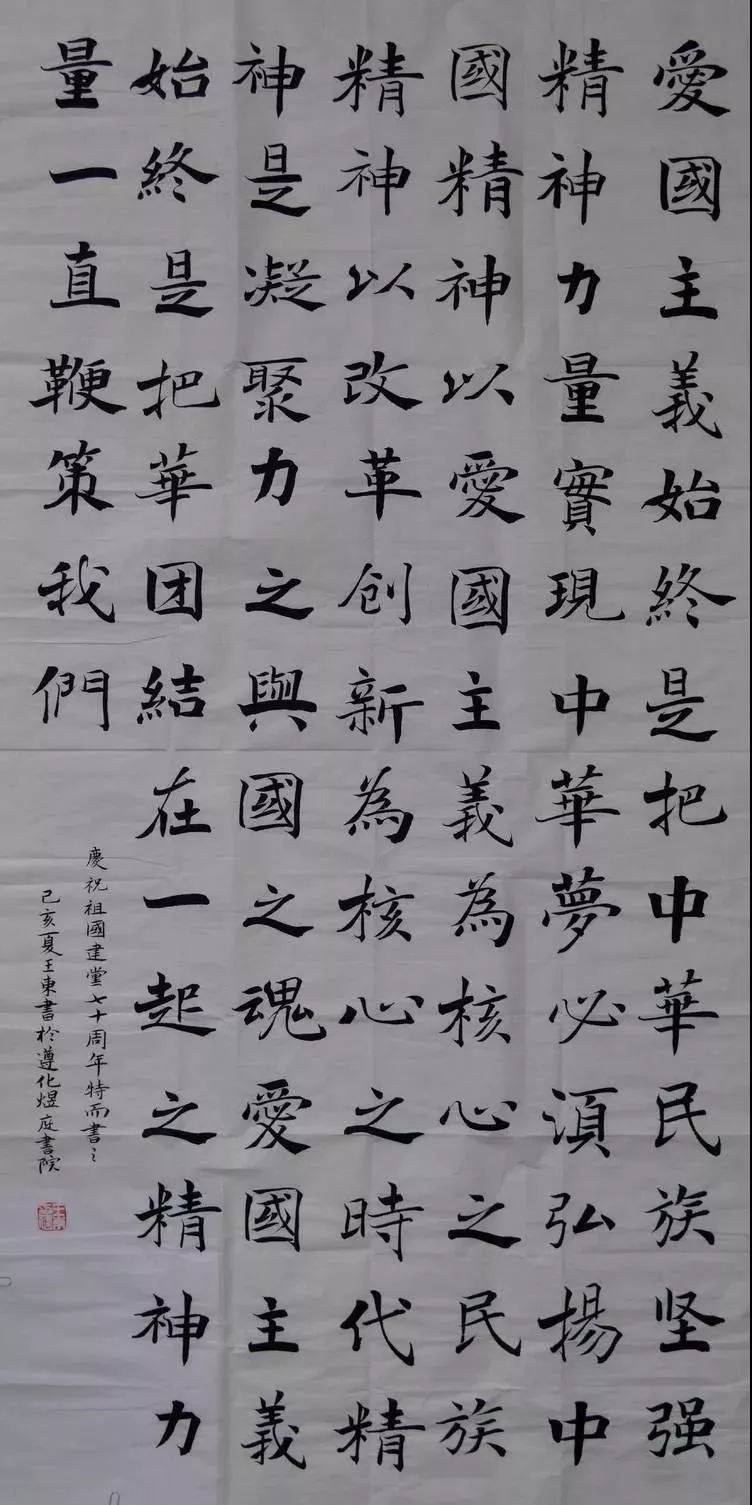 愛國主義始終是把中華民族坚强
精神力量實現中華夢必湏弘揚中
國精神以愛國主義為核心之民族
精神以改革创新為核心之時代精
神是凝聚力之與國之魂愛國主義
始終是把華团結在一起之精神力
量一直鞭策我們
慶祝祖國建黨七十周年特而書之
己亥夏王東書於遵化煜庭書院